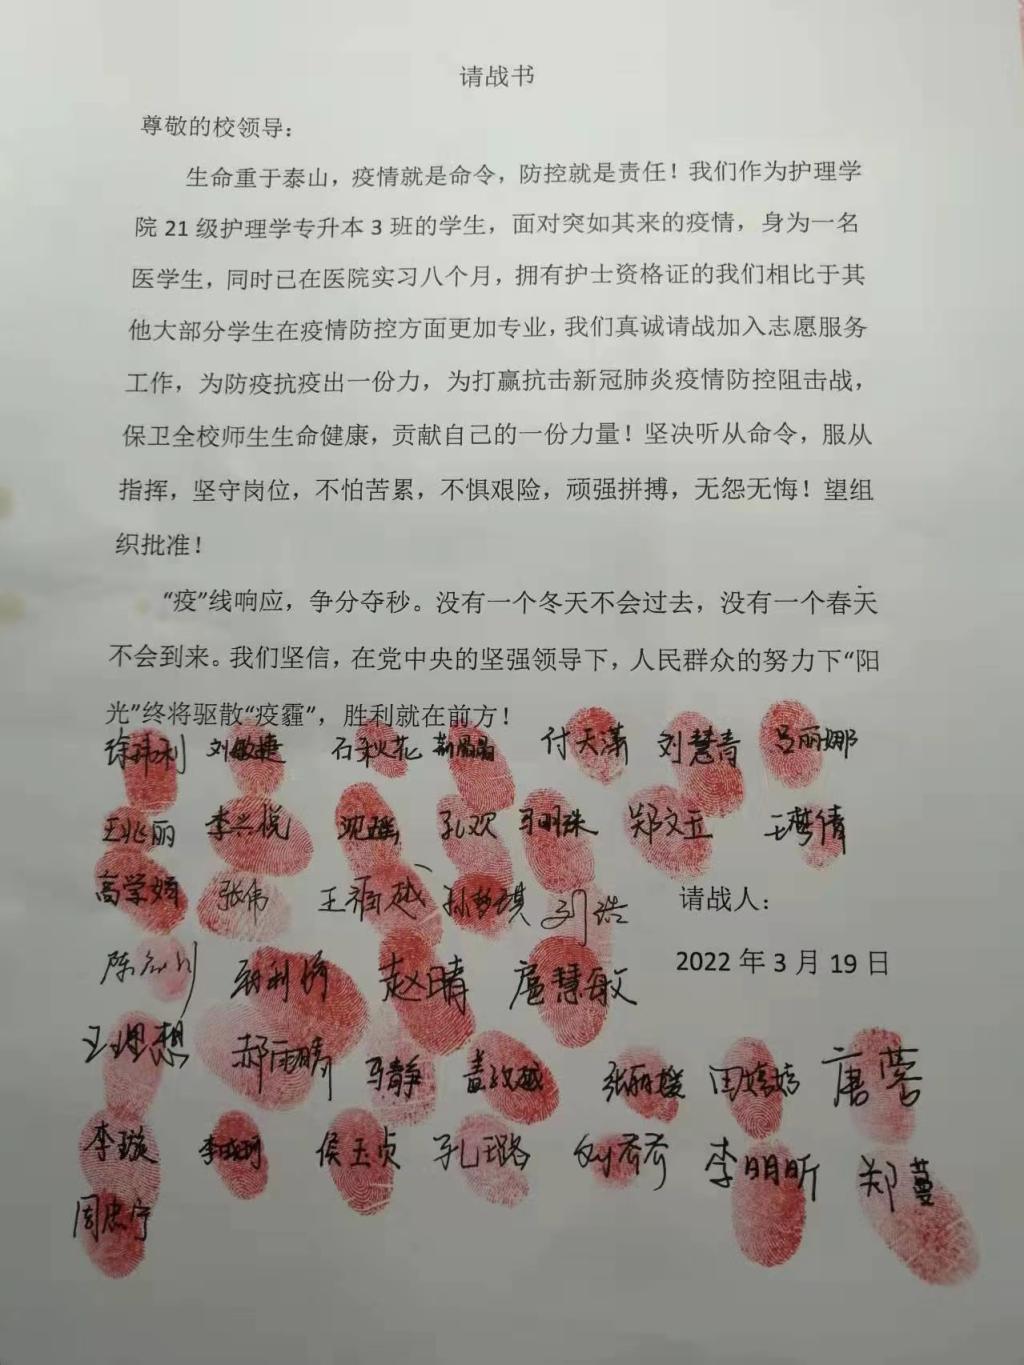 请战书
尊敬的校领导：
生命重于泰山，疫情就是命令，防控就是责任！我们作为护理学
院 21 级护理学专升本 3 班的学生，面对突如其来的疫情，身为一名
医学生，同时已在医院实习八个月，拥有护士资格证的我们相比于其
他大部分学生在疫情防控方面更加专业，我们真诚请战加入志愿服务
工作，为防疫抗疫出一份力，为打赢抗击新冠肺炎疫情防控阻击战，
保卫全校师生生命健康，贡献自己的一份力量！坚决听从命令，服从
指挥，坚守岗位，不怕苦累，不惧艰险，顽强拼搏，无怨无悔！望组
织批准！
“疫”线响应，争分夺秒。没有一个冬天不会过去，没有一个春天
不会到来。我们坚信，在党中央的坚强领导下，人民群众的努力下“阳
光”终将驱散“疫霾”，胜利就在前方！
刘敏捷 石秋花 付天潇 刘慧青 吕丽娜
王兆丽 李兴悦 沈瑶 孔欢 马明珠 郑文立 王梦倩
高学娇 张伟 王福越 孙梦琪 刘浩
请战人：
赵晴 扈慧敏
2022 年 3 月 19 日
王理想 郝雨晴 马静 张丽媛 田婷婷 唐蓉
李璇 侯玉贞 孔璐 刘乔乔 李明昕 郑蔓
周忠宁